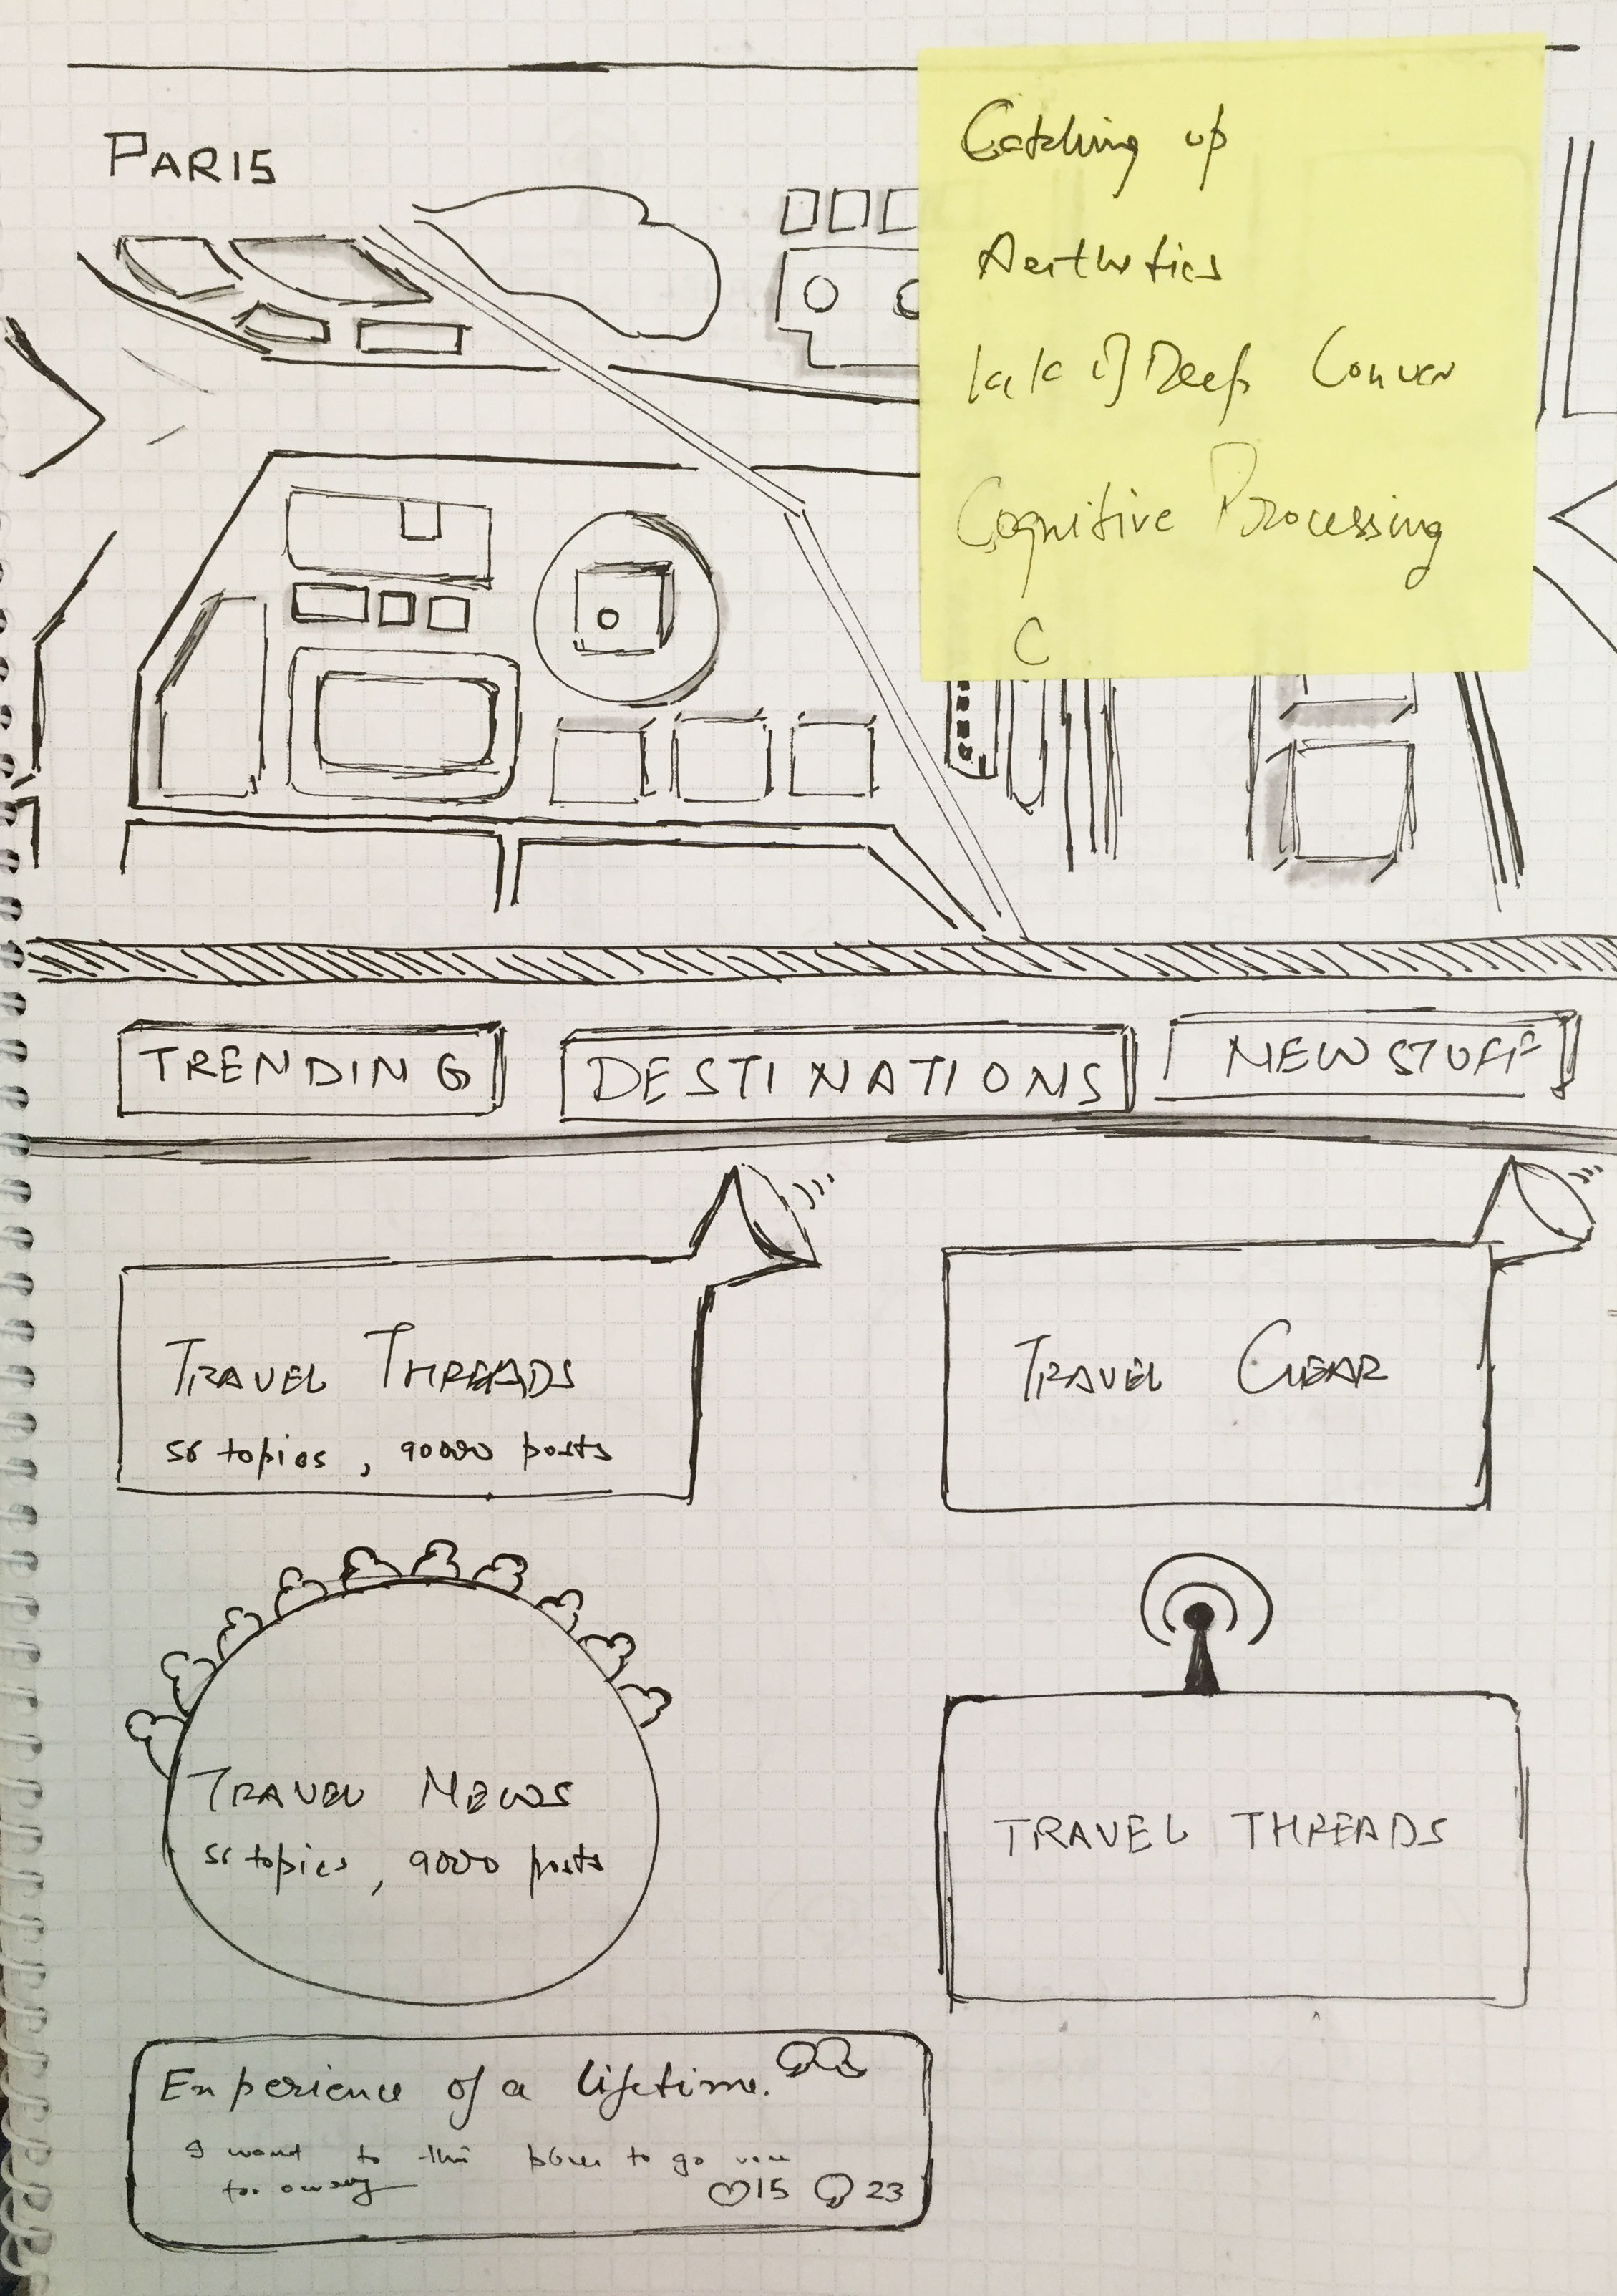 PARIS
Catching up
Aesthetics
of Deep Conver
Cognitive Processing
C
TRENDING
DESTINATIONS
NEW STUFF
TRAVEL THREADS
56 topics, 90000 posts
TRAVEL CLEAR
TRAVEL NEWS
56 topics, 9000 posts
TRAVEL THREADS
Experience of a lifetime.
I want to this to go
15 23